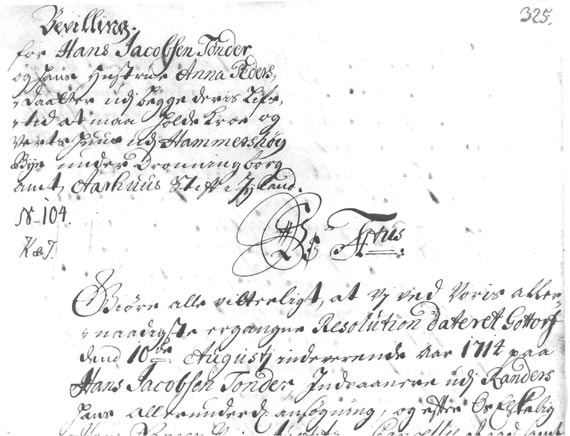 325.
Bevilling.
for Hans Jacobsen Tonder
og hans Hustrue Anna Peders,
-daatter udj begge deris Lifs,
-tid at maa holde Kroe og
Verts Huus udj Hammershøy
Bye under Dronningborg
amt, Aarhuus Stift i Jylland.
No 104.
Giøre alle vitterligt, at Vj ved Voris aller-
-naadigste ergangne Resolution dateret Gottorf
dend 10de Augustj indeverende Aar 1714 paa
Hans Jacobsen Tonder Indvaanere udj Randers
hans allerunderd. ansøgning, og efter